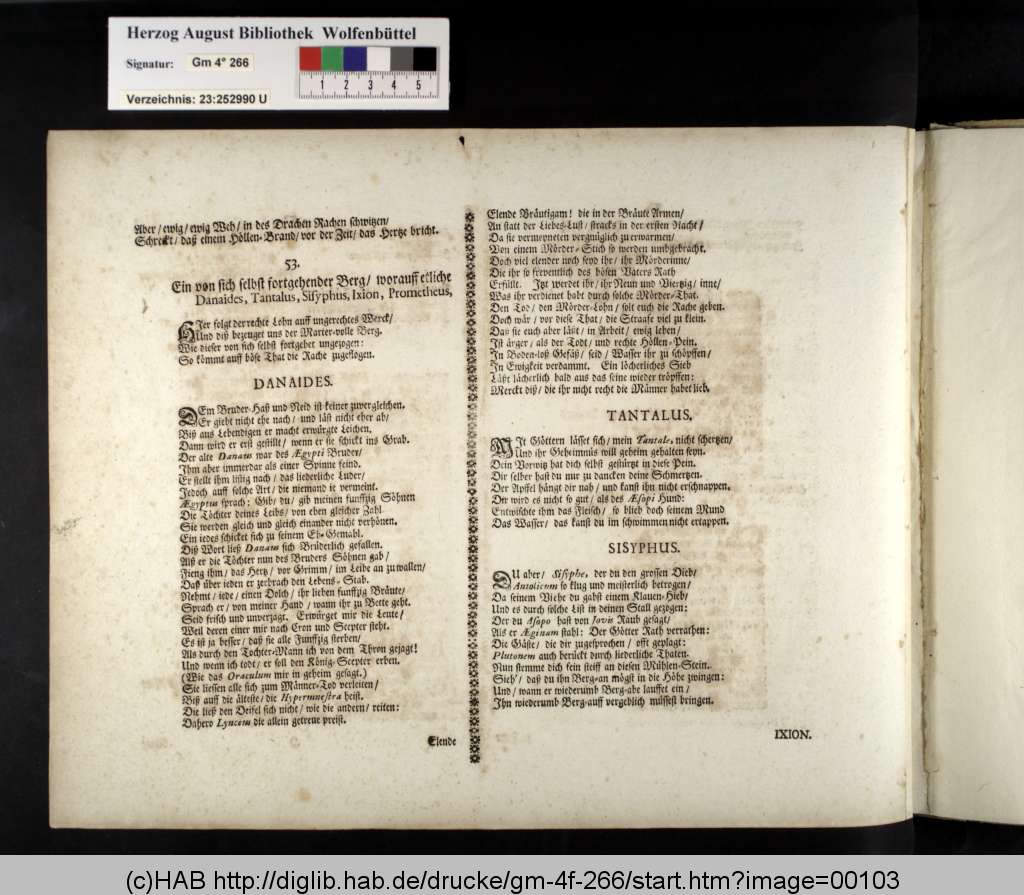 Herzog August Bibliothek Wolfenbüttel
Signatur: Gm 4° 266
Verzeichnis: 23:252990 U
1 2 3 4 5
Aber/ ewig/ ewig Weh/ in des Drachen Rachen schwitzen/
Schreckt/ daß einem Höllen-Brand/ vor der Zeit/ das Hertze bricht.
53.
Ein von sich selbst fortgehender Berg/ worauff etliche
Danaides, Tantalus, Sisyphus, Ixion, Prometheus,
HIer folgt der rechte Lohn auff ungerechtes Werck/
Und diß bezeuget uns der Marter-volle Berg.
Wie dieser von sich selbst fortgehet ungezogen:
So kömmt auff böse That die Rache zugeflogen.
DANAIDES.
DEm Bruder-Haß und Neid ist keiner zuvergleichen.
Er giebt nicht ehe nach/ und läst nicht eher ab/
Biß aus Lebendigen er macht erwürgte Leichen.
Dann wird er erst gestillt/ wenn er sie schickt ins Grab.
Der alte Danaus war des Ægypti Bruder/
Ihm aber immerdar als einer Spinne feind.
Er stellt ihm listig nach/ das liederliche Luder/
Jedoch auff solche Art/ die niemand ie vermeint.
Ægyptus sprach: Gib/ du/ gib meinen funffzig Söhnen
Die Töchter deines Leibs/ von eben gleicher Zahl
Sie werden gleich und gleich einander nicht verhönen.
Ein iedes schicket sich zu seinem Eh-Gemahl.
Diß Wort ließ Danaus sich Brüderlich gefallen.
Alß er die Töchter nun des Bruders Söhnen gab/
Fieng ihm/ das Hertz/ vor Grimm/ im Leibe an zu wallen/
Daß über ieden er zerbrach den Lebens-Stab.
Nehmt/ iede/ einen Dolch/ ihr lieben funffzig Bräute/
Sprach er/ von meiner Hand/ wann ihr zu Bette geht.
Seid frisch und unverzagt. Erwürget mir die Leute/
Weil deren einer mir nach Cron und Scepter steht.
Es ist ja besser/ daß sie alle Funffzig sterben/
Als durch den Tochter-Mann ich von dem Thron gejagt!
Und wenn ich todt/ er soll den König-Scepter erben.
(Wie das Oraculum mir in geheim gesagt.)
Sie liessen alle sich zum Männer-Tod verleiten/
Biß auff die älteste/ die Hypermnestra heist.
Die ließ den Deifel sich nicht/ wie die andern/ reiten:
Dahero Lynceus die allein getreue preist.
Elende
Elende Bräutigam! die in der Bräute Armen/
An statt der Liebes-Lust/ stracks in der ersten Nacht/
Da sie vermeyneten vergnüglich zu erwarmen/
Von einem Mörder-Stich so werden umbgebracht.
Doch viel elender noch seyd ihr/ ihr Mörderinne/
Die ihr so freventlich des bösen Vaters Rath
Erfüllt. Itzt werdet ihr/ ihr Neun und Viertzig/ inne/
Was ihr verdienet habt durch solche Mörder-That.
Den Tod/ den Mörder-Lohn/ solt euch die Rache geben.
Doch wär/ vor diese That/ die Straafe viel zu klein.
Daß sie euch aber läßt/ in Arbeit/ ewig leben/
Ist ärger/ als der Todt/ und rechte Höllen-Pein.
In Boden-loß Gefäß/ seid/ Wasser ihr zu schöpffen/
In Ewigkeit verdammt. Ein löcherliches Sieb
Läßt lächerlich bald aus das seine wieder tröpffen:
Merckt diß/ die ihr nicht recht die Männer habet lieb.
TANTALUS.
MIt Göttern lässet sich/ mein Tantale, nicht schertzen/
Und ihr Geheimnüs will geheim gehalten seyn.
Dein Vorwitz hat dich selbst gestürtzt in diese Pein.
Dir selber hast du nur zu dancken deine Schmertzen.
Der Apffel hängt dir nah/ und kanst ihn nicht erschnappen.
Dir wird es nicht so gut/ als des Æsopi Hund:
Entwischte ihm das Fleisch/ so blieb doch seinem Mund
Das Wasser/ das kanst du im schwimmen nicht ertappen.
SISYPHUS.
DU aber/ Sisyphe, der du den grossen Dieb/
Autolicum so klug und meisterlich betrogen/
Da seinem Viehe du gabst einem Klauen-Hieb/
Und es durch solche List in deinen Stall gezogen:
Der du Asopo hast von Jovis Raub gesagt/
Als er Æginam stahl: Der Götter Rath verrathen:
Die Gäste/ die dir zugesprochen/ offt geplagt:
Plutonem auch berückt durch liederliche Thaten.
Nun stemme dich fein steiff an diesen Mühlen-Stein.
Sieh'/ daß du ihn Berg-an mögst in die Höhe zwingen:
Und/ wann er wiederumb Berg-abe lauffet ein/
Ihn wiederumb Berg-auff vergeblich müssest bringen.
IXION.
(c)HAB http://diglib.hab.de/drucke/gm-4f-266/start.htm?image=00103